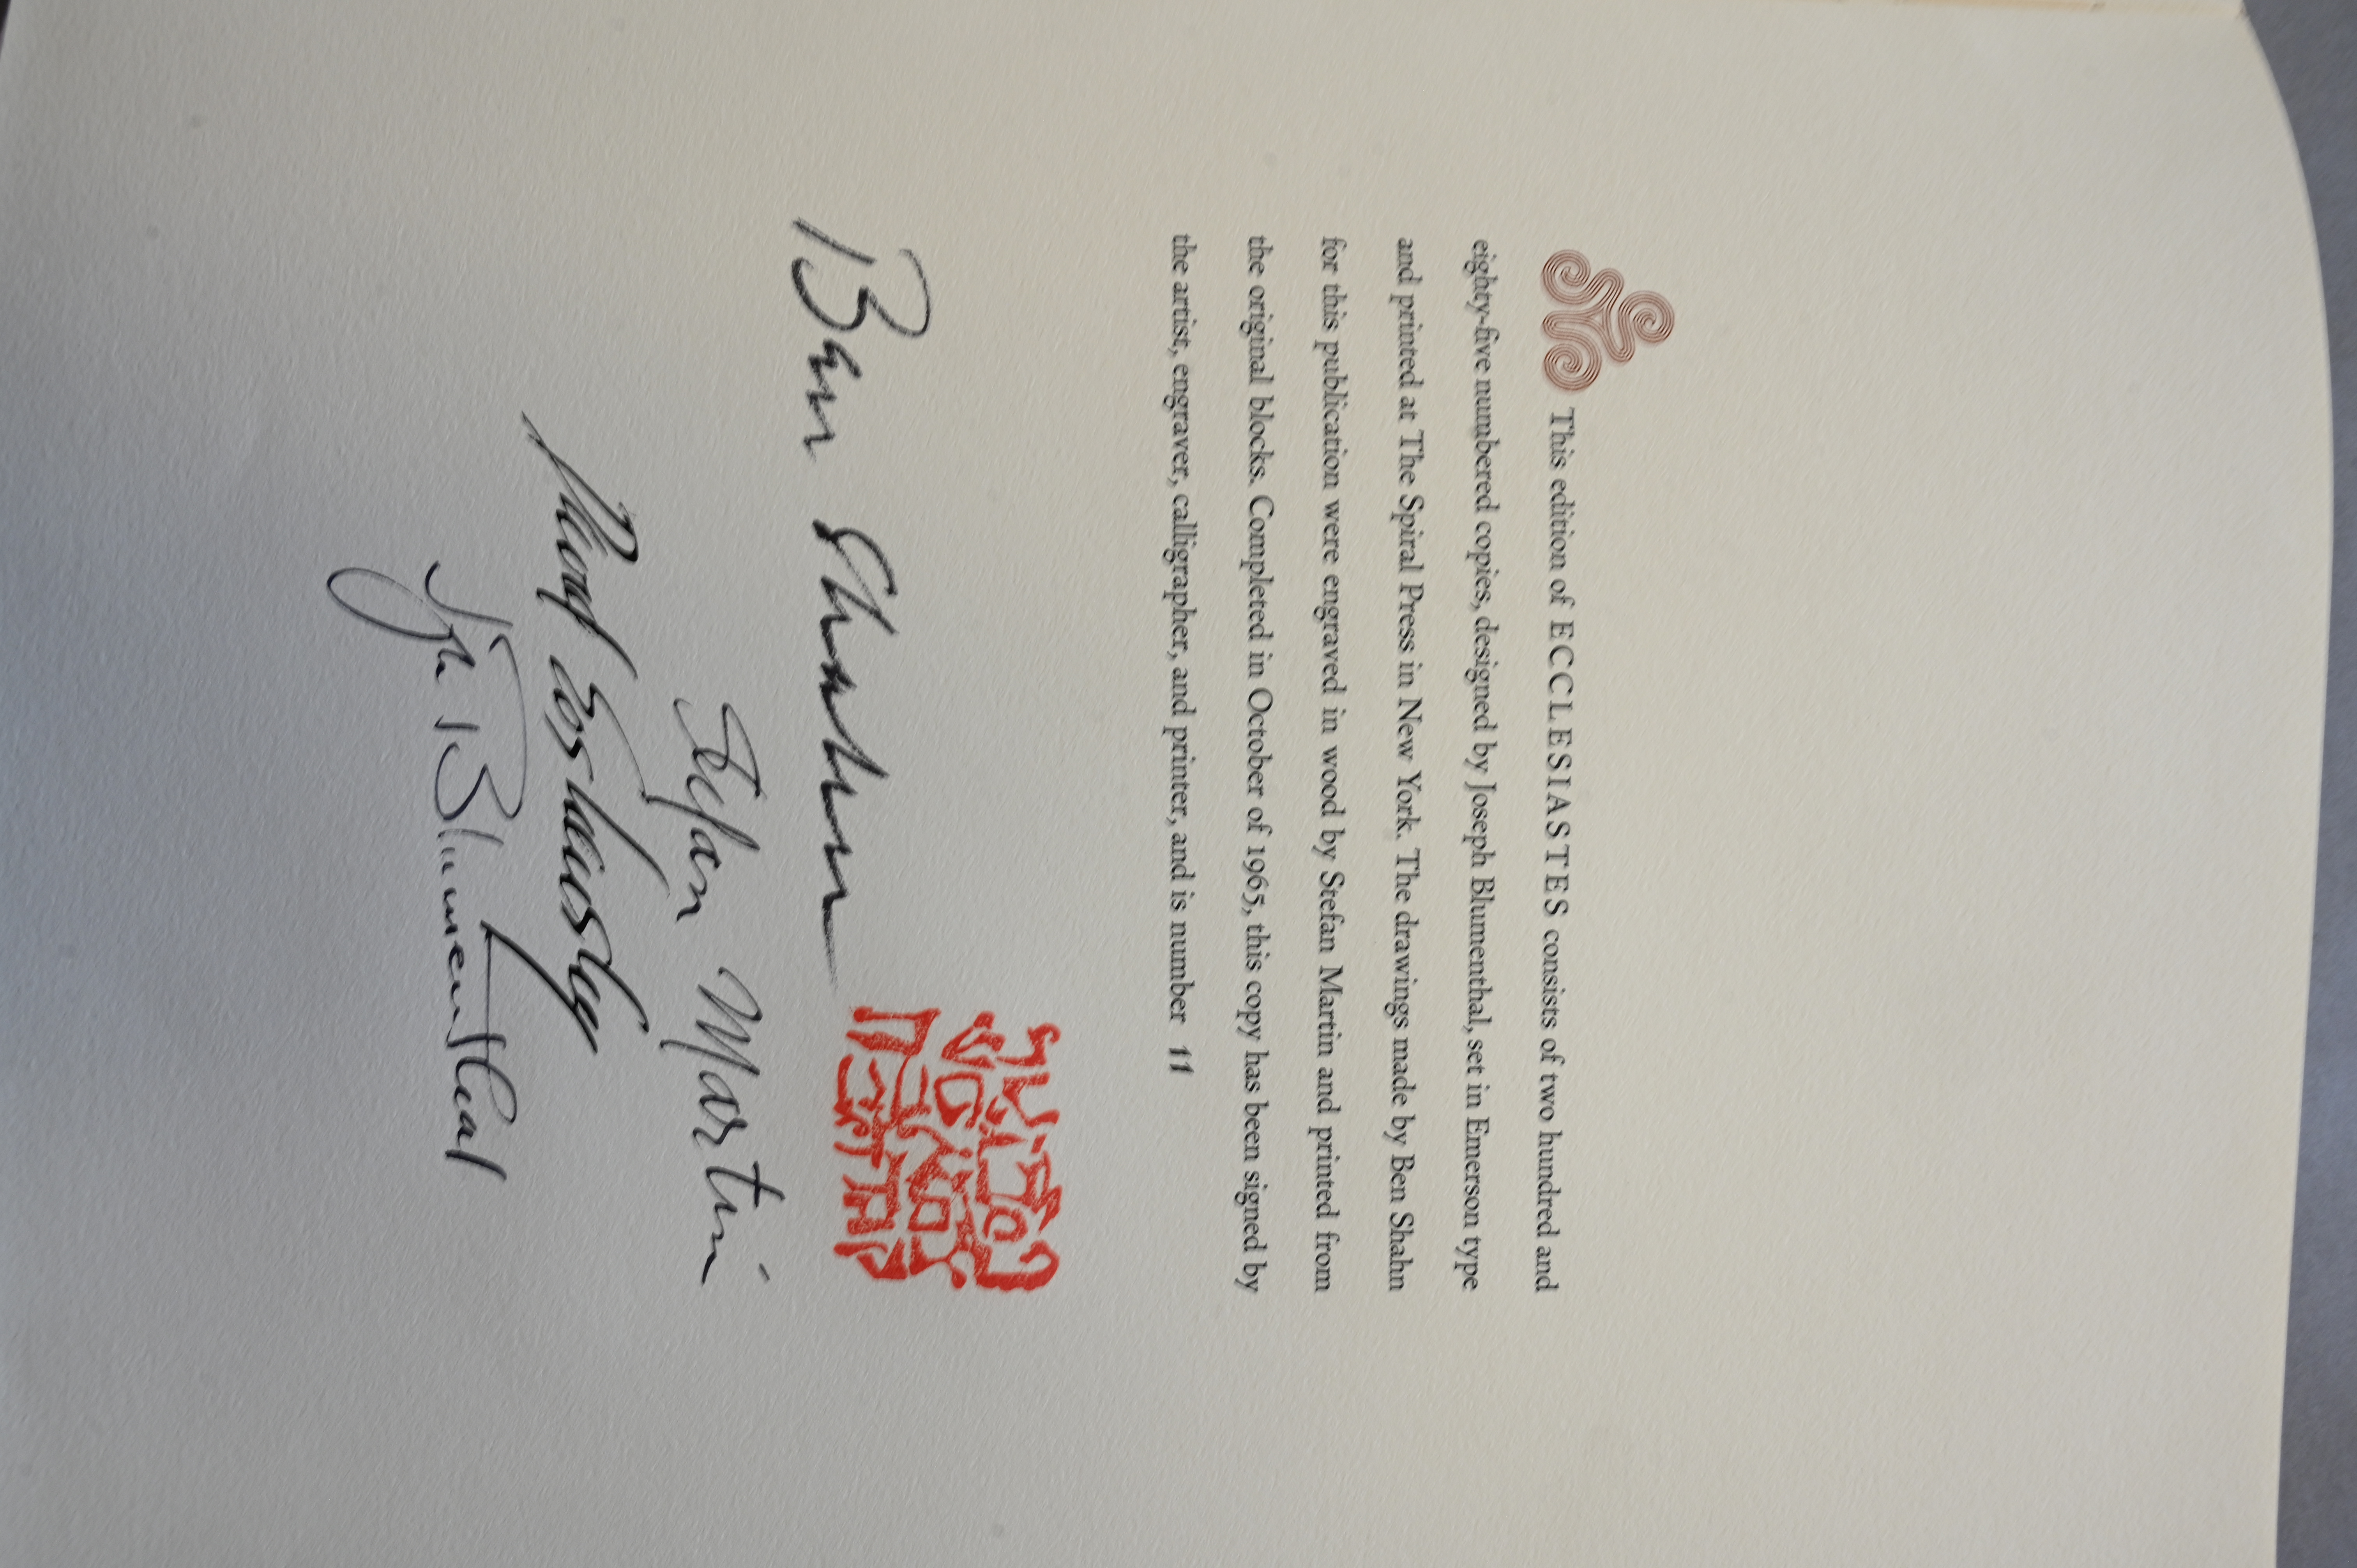 This edition of ECCLESIASTES consists of two hundred and
eighty-five numbered copies, designed by Joseph Blumenthal, set in Emerson type
and printed at The Spiral Press in New York. The drawings made by Ben Shahn
for this publication were engraved in wood by Stefan Martin and printed from
the original blocks. Completed in October of 1965, this copy has been signed by
the artist, engraver, calligrapher, and printer, and is number 11
Ben Shahn
Stefan Martin
David Soshensky
Jos. Blumenthal